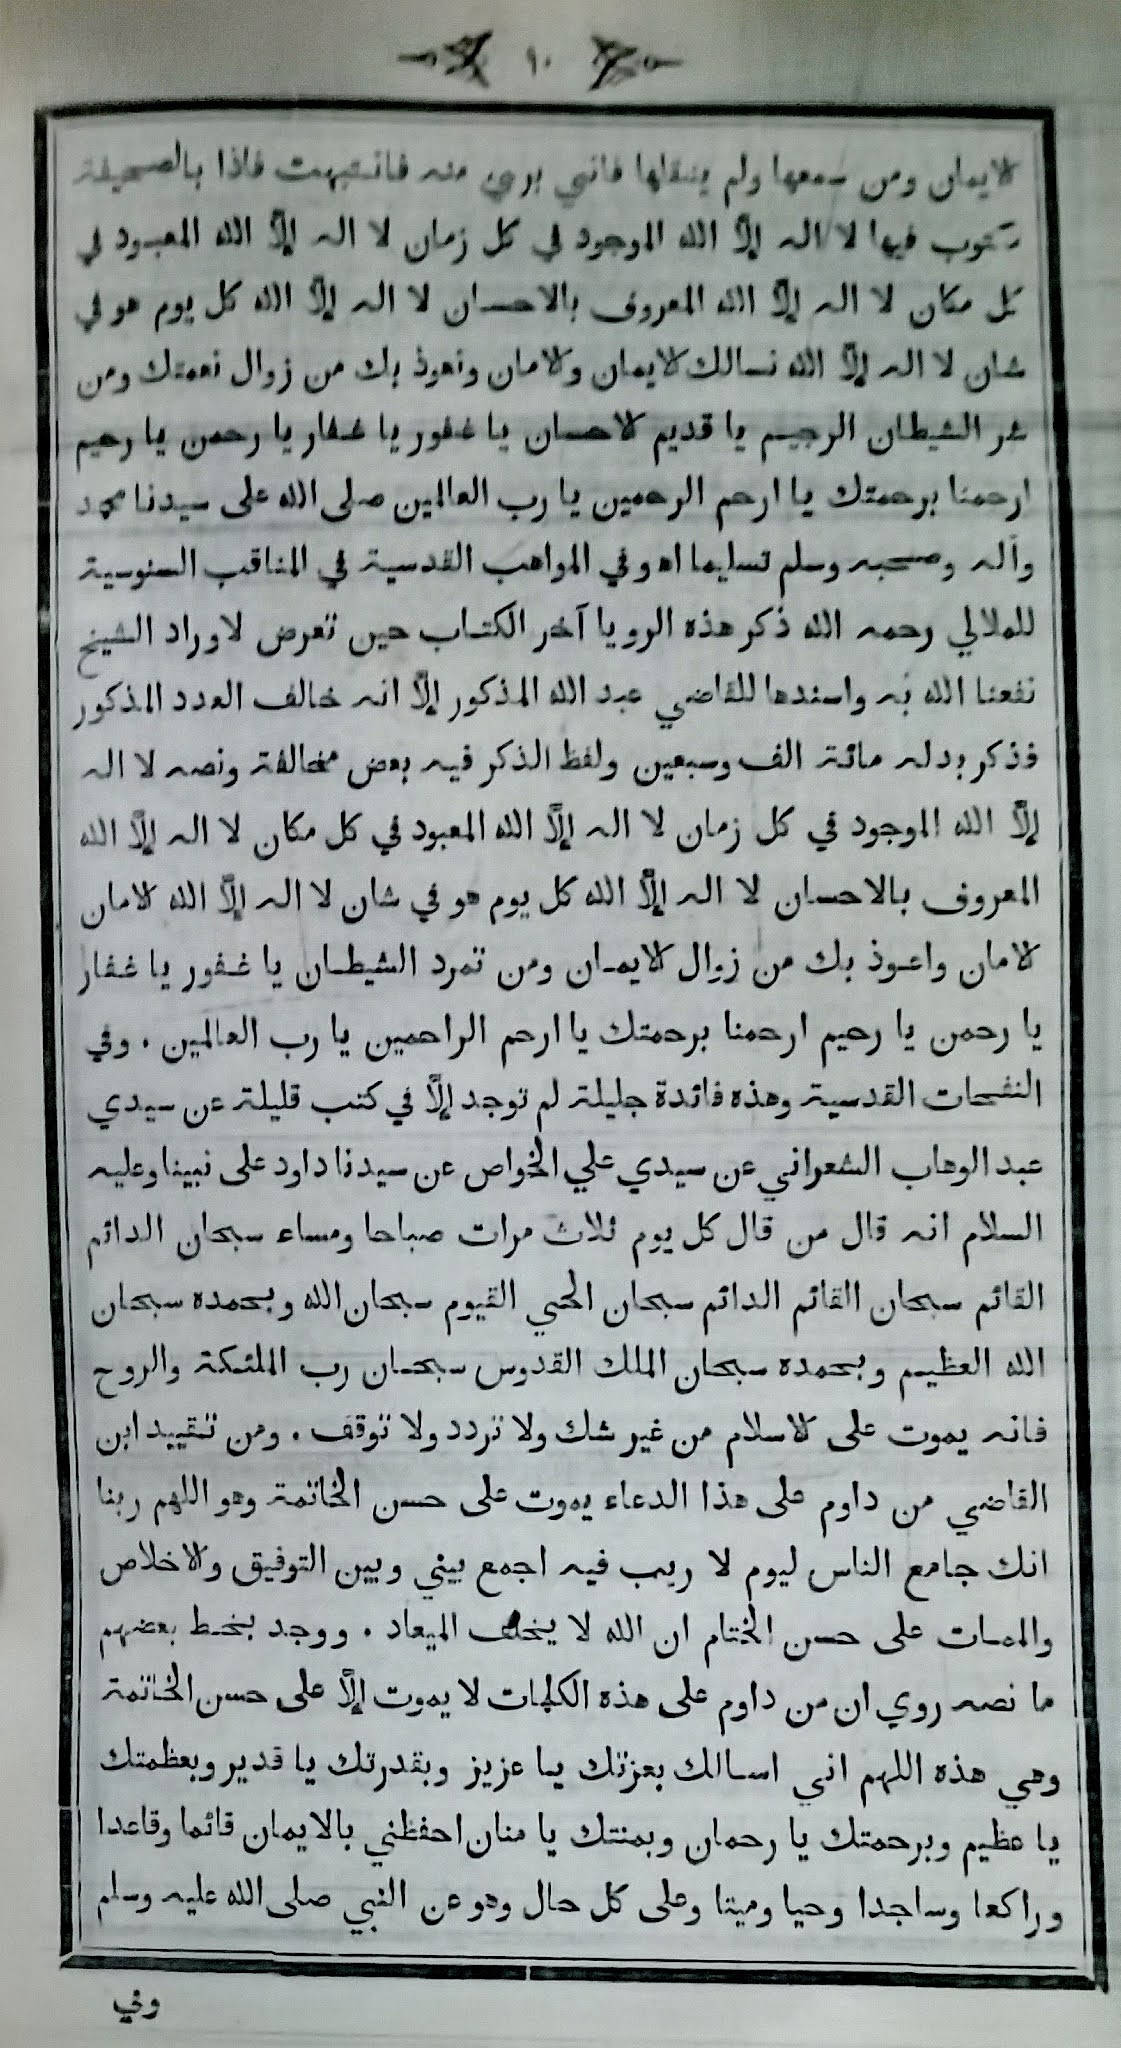 ٩٠
لايمان ومن سمعها ولم ينقلها فاني بري منه فانتبهت فاذا بالصحيفة
مكتوب فيها لا اله إلّا الله الموجود في كل زمان لا اله إلّا الله المعبود في
كل مكان لا اله إلّا الله المعروف بالاحسان لا اله إلّا الله كل يوم هو في
شان لا اله إلّا الله نسالك لايمان ولامان ونعوذ بك من زوال نعمتك ومن
شر الشيطان الرجيم يا قديم لاحسان يا غفور يا غفار يا رحمن يا رحيم
ارحمنا برحمتك يا ارحم الرحمين يا رب العالمين صلى الله على سيدنا محمد
وآله وصحبه وسلم تسليما اه وفي المواهب القدسية في المناقب السنوسية
للملالي رحمه الله ذكر هذه الرويا آخر الكتاب حين تعرض لاوراد الشيخ
نفعنا الله به واسندها للقاضي عبد الله المذكور إلّا انه خالف العدد المذكور
فذكر بدله مائة الف وسبعين ولفظ الذكر فيه بعض مخالفة ونصه لا اله
إلّا الله الموجود في كل زمان لا اله إلّا الله المعبود في كل مكان لا اله إلّا الله
المعروف بالاحسان لا اله إلّا الله كل يوم هو في شان لا اله إلّا الله لامان
لامان واعوذ بك من زوال لايمان ومن تمرد الشيطان يا غفور يا غفار
يا رحمن يا رحيم ارحمنا برحمتك يا ارحم الراحمين يا رب العالمين . وفي
النفحات القدسية وهذه فائدة جليلة لم توجد إلّا في كتب قليلة عن سيدي
عبد الوهاب الشعراني عن سيدي علي الخواص عن سيدنا داود على نبينا وعليه
السلام انه قال من قال كل يوم ثلاث مرات صباحا ومساء سبحان الدائم
القائم سبحان القائم الدائم سبحان الحي القيوم سبحان الله وبحمده سبحان
الله العظيم وبحمده سبحان الملك القدوس سبحان رب الملئكة والروح
فانه يموت على لاسلام من غير شك ولا تردد ولا توقف . ومن تقييد ابن
القاضي من داوم على هذا الدعاء يموت على حسن الخاتمة وهو اللهم ربنا
انك جامع الناس ليوم لا ريب فيه اجمع بيني وبين التوفيق ولاخلاص
والممات على حسن الختام ان الله لا يخلف الميعاد . ووجد بخط بعضهم
ما نصه روي ان من داوم على هذه الكلمات لا يموت إلّا على حسن الخاتمة
وهي هذه اللهم اني اسالك بعزتك يا عزيز وبقدرتك يا قدير وبعظمتك
يا عظيم وبرحمتك يا رحمان وبمنتك يا منان احفظني بالايمان قائما وقاعدا
وراكعا وساجدا وحيا وميتا وعلى كل حال وهو عن النبي صلى الله عليه وسلم
وفي